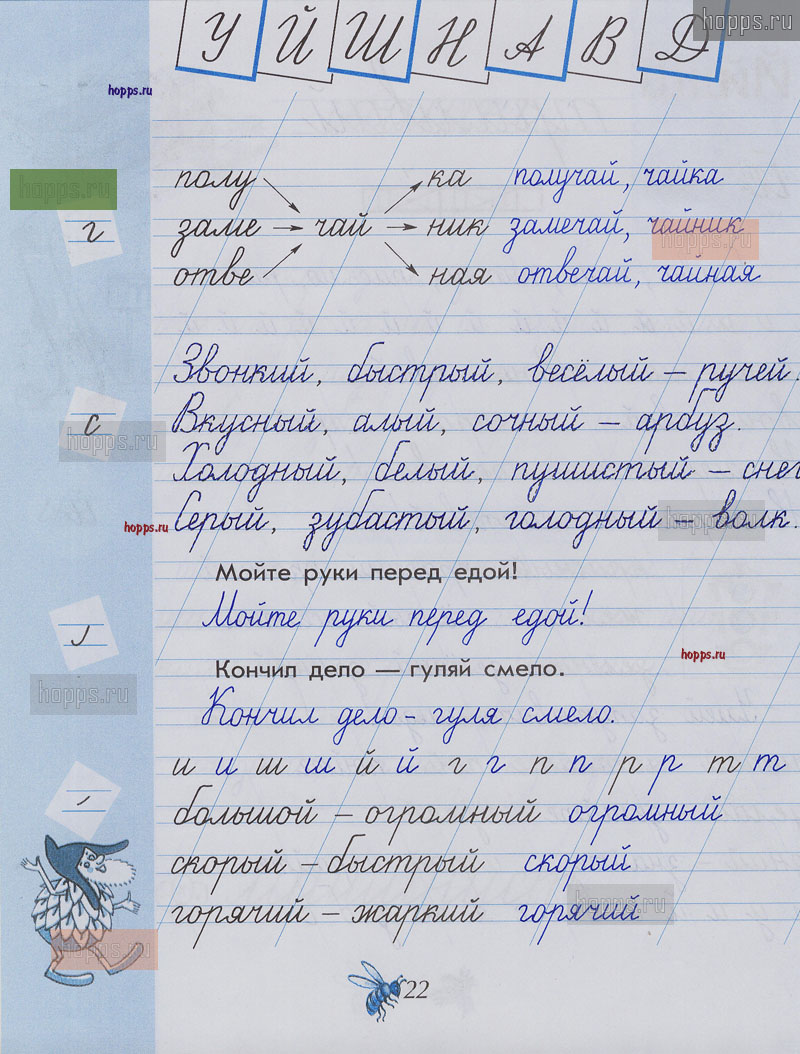 У Й Ш Н А В Д
hopps.ru
hopps.ru
hopps.ru
полу ка получай, чайка
г заме чай ник замечай, чайник
hopps.ru
отве ная отвечай, чайная
Звонкий, быстрый, весёлый – ручей.
с Вкусный, алый, сочный – арбуз.
hopps.ru
Холодный, белый, пушистый – снег
Серый, зубастый, голодный – волк.
hopps.ru
hopps.ru
Мойте руки перед едой!
Мойте руки перед едой!
hopps.ru
Кончил дело — гуляй смело.
hopps.ru
Кончил дело - гуля смело.
и и ш ш й й г г п п р р т т
большой – огромный огромный
скорый – быстрый скорый
горячий – жаркий горячий
hopps.ru
hopps.ru
22